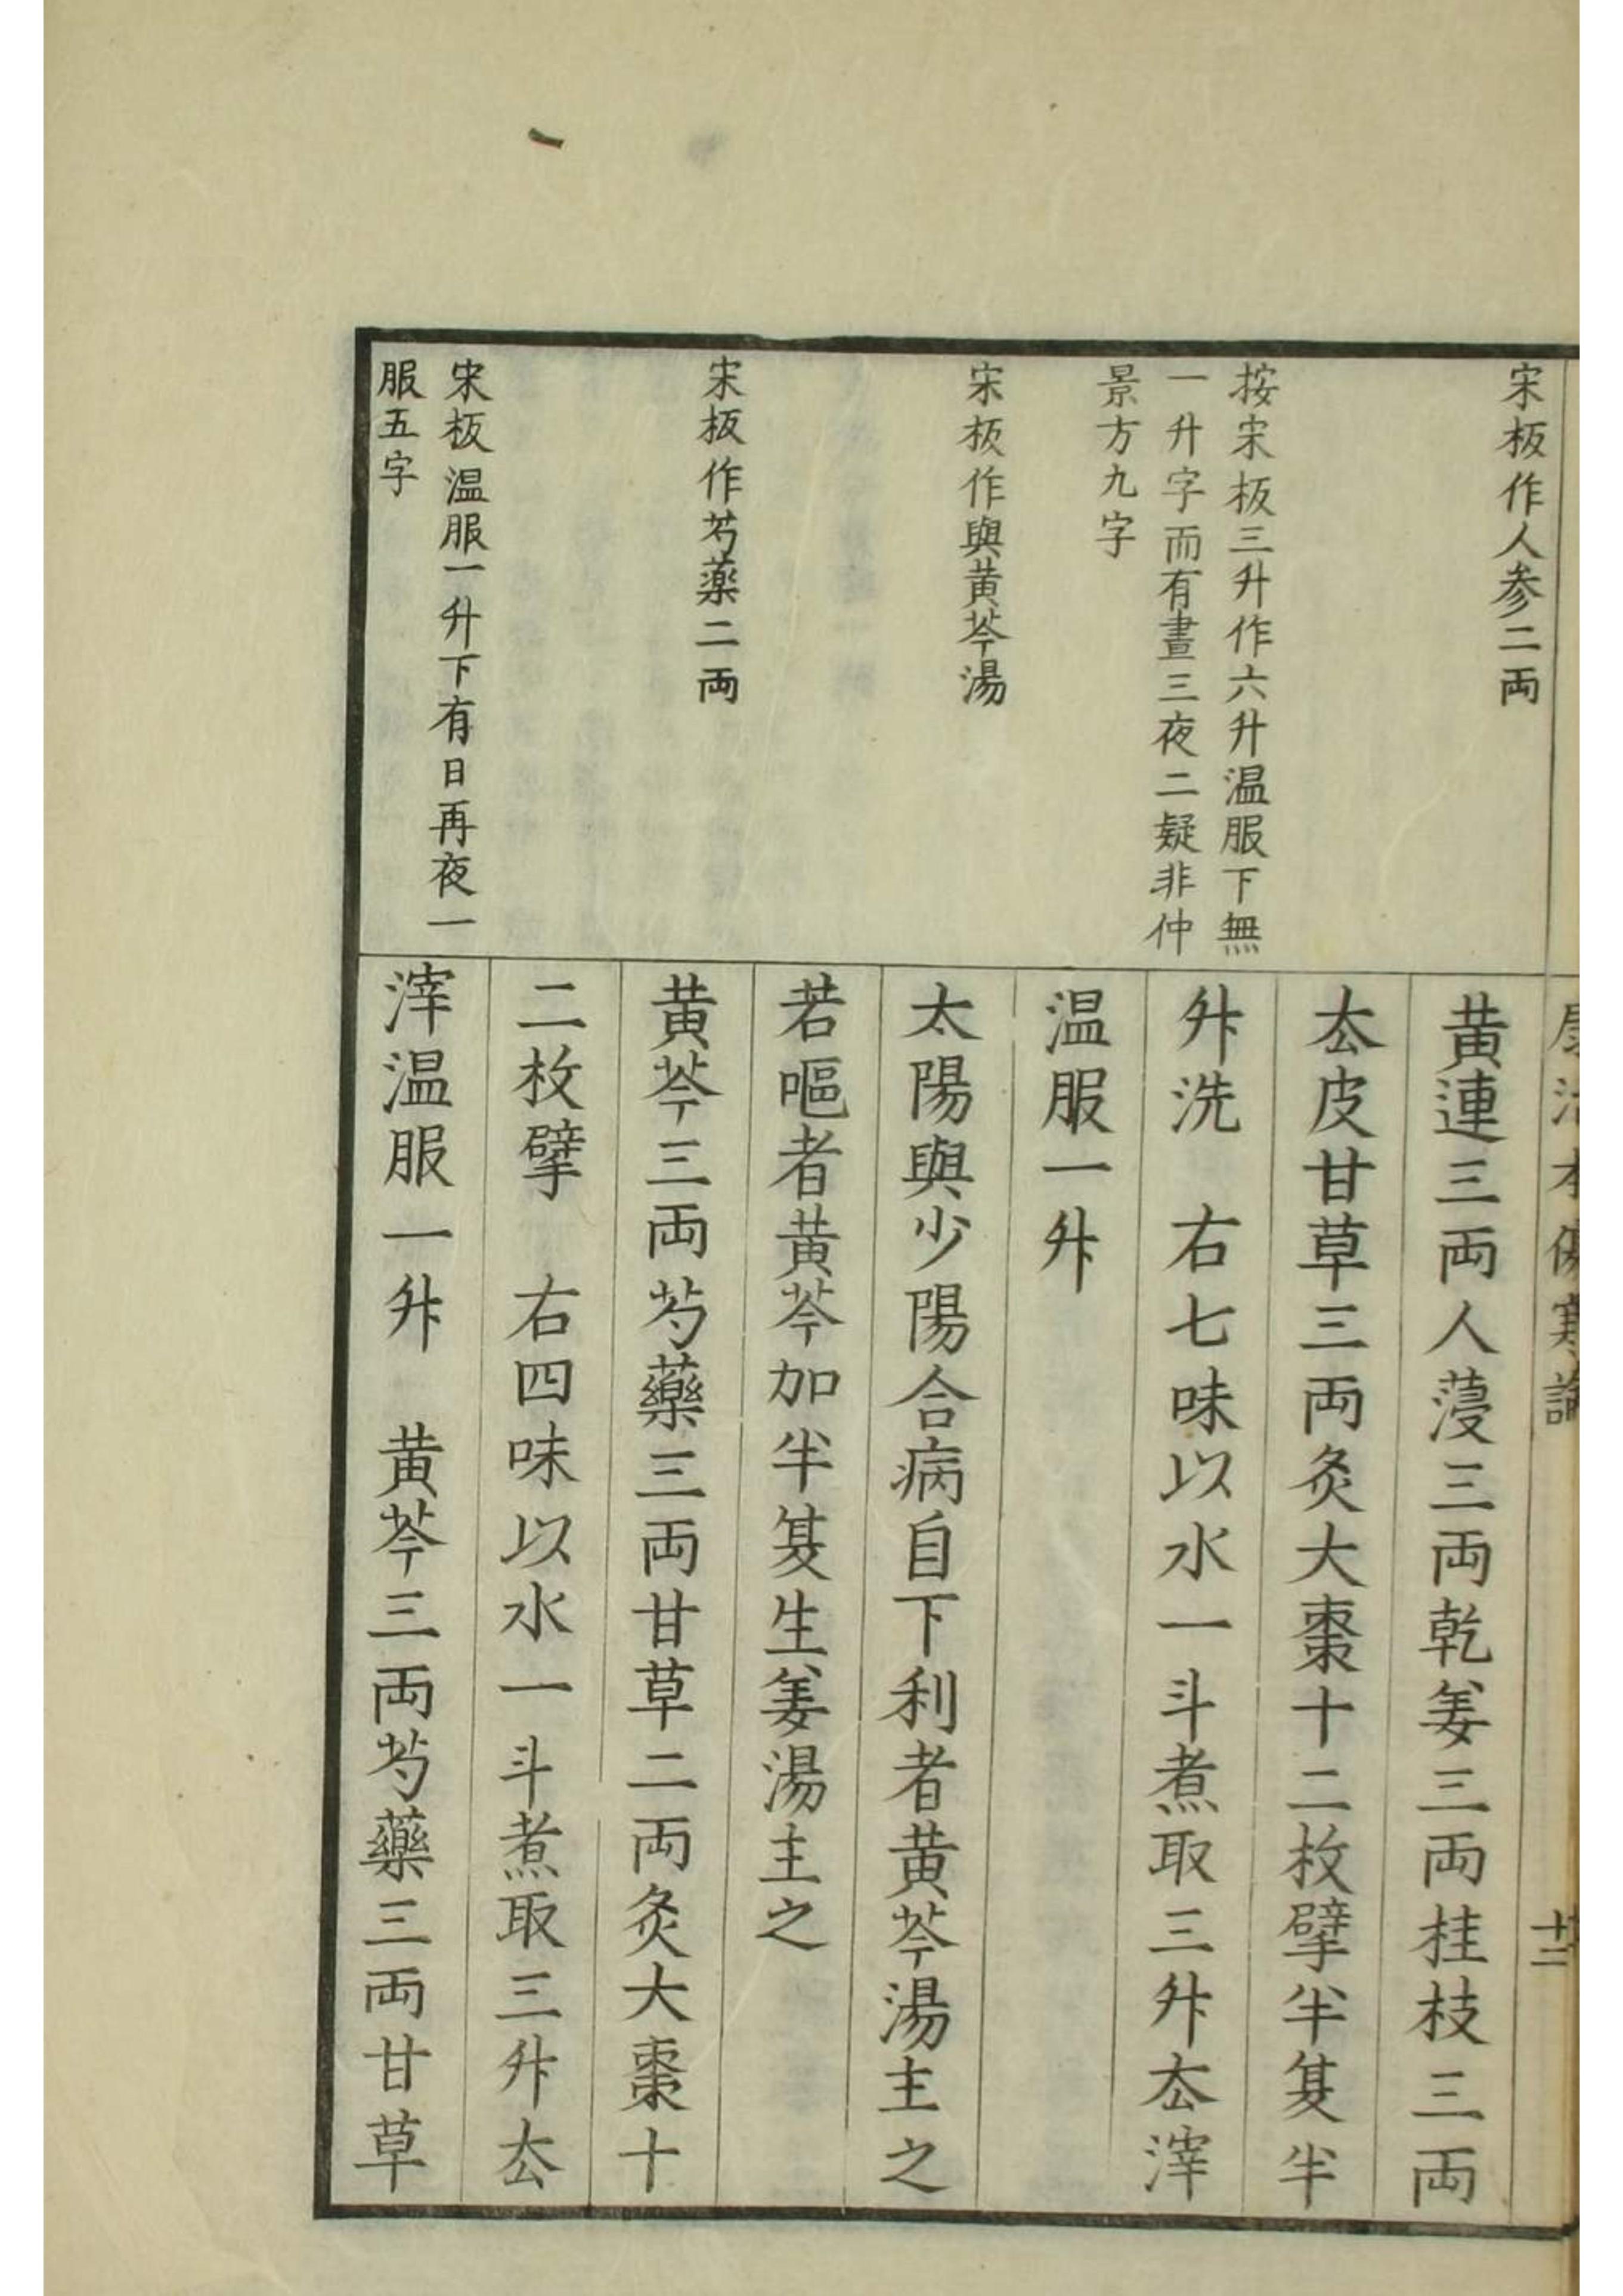 宋板作人参二両
按宋板三升作六升温服下無
一升字而有晝三夜二疑非仲
景方九字
宋板作與黄芩湯
宋板作芍薬二両
宋板温服一升下有日再夜一
服五字
黄連三両人蓡三両乾姜三両桂枝三両
厺皮甘草三両炙大棗十二枚擘半夏半
升洗　右七味以水一斗煮取三升厺滓
温服一升
太陽與少陽合病自下利者黄芩湯主之
若嘔者黄芩加半夏生姜湯主之
黄芩三両芍藥三両甘草二両炙大棗十
二枚擘　右四味以水一斗煮取三升厺
滓温服一升　黄芩三両芍藥三両甘草